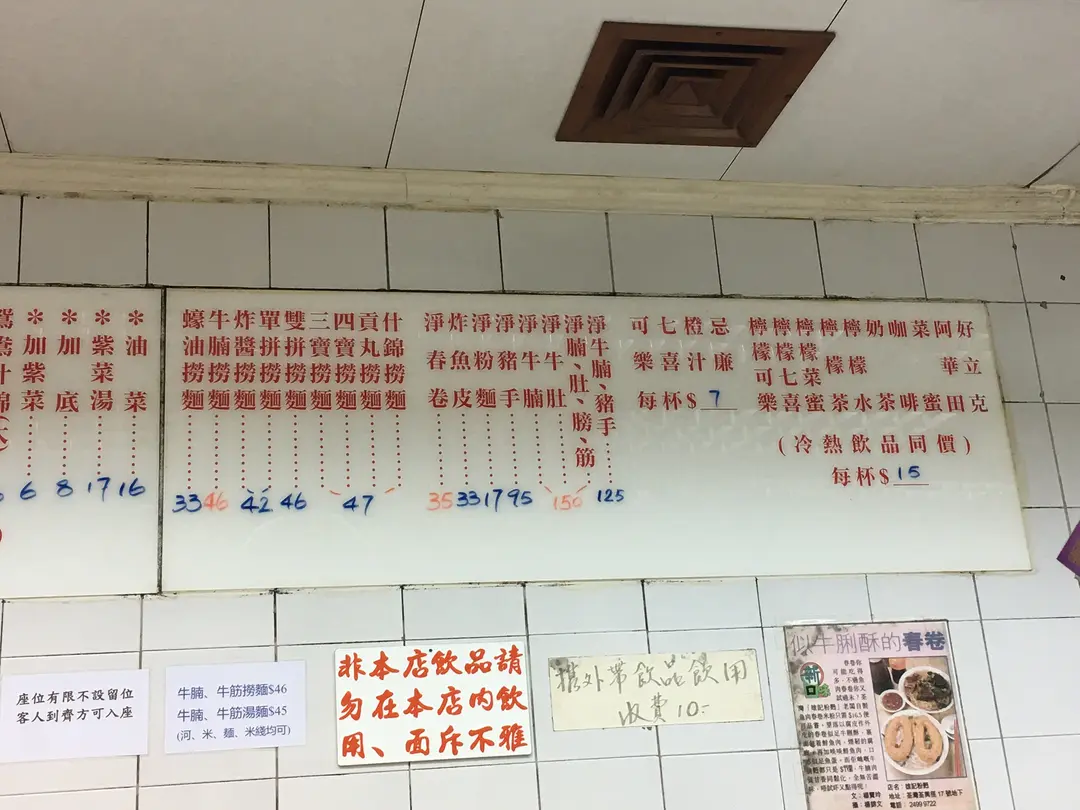 *加紫菜 6
*加底 8
*紫菜湯 17
*油菜 16
蠔油撈麵 33
牛腩撈麵 46
炸醬撈麵
單拼撈麵
42
雙拼撈麵 46
三寶撈麵
四寶撈麵
貢丸撈麵
什錦撈麵
47
淨春卷 35
炸魚皮 33
淨粉麵 17
淨豬手 95
淨牛腩
淨牛肚
淨腩、肚、膀、筋
150
淨牛腩、豬手 125
可樂
七喜
橙汁
忌廉
每杯$ 7
檸檬可樂
檸檬七喜
檸檬菜蜜
檸檬茶
檸檬水
奶茶
咖啡
菜蜜
阿華田
好立克
(冷熱飲品同價)
每杯$ 15
座位有限不設留位
客人到齊方可入座
牛腩、牛筋撈麵$46
牛腩、牛筋湯麵$45
(河、米、麵、米綫均可)
非本店飲品請
勿在本店内飲
用、面斥不雅
外帶飲品飲用
收費 10-
似牛脷酥的春卷
店名:雄記粉麵
地址:荃灣荃興徑 17 號地下
電話:2499 9722